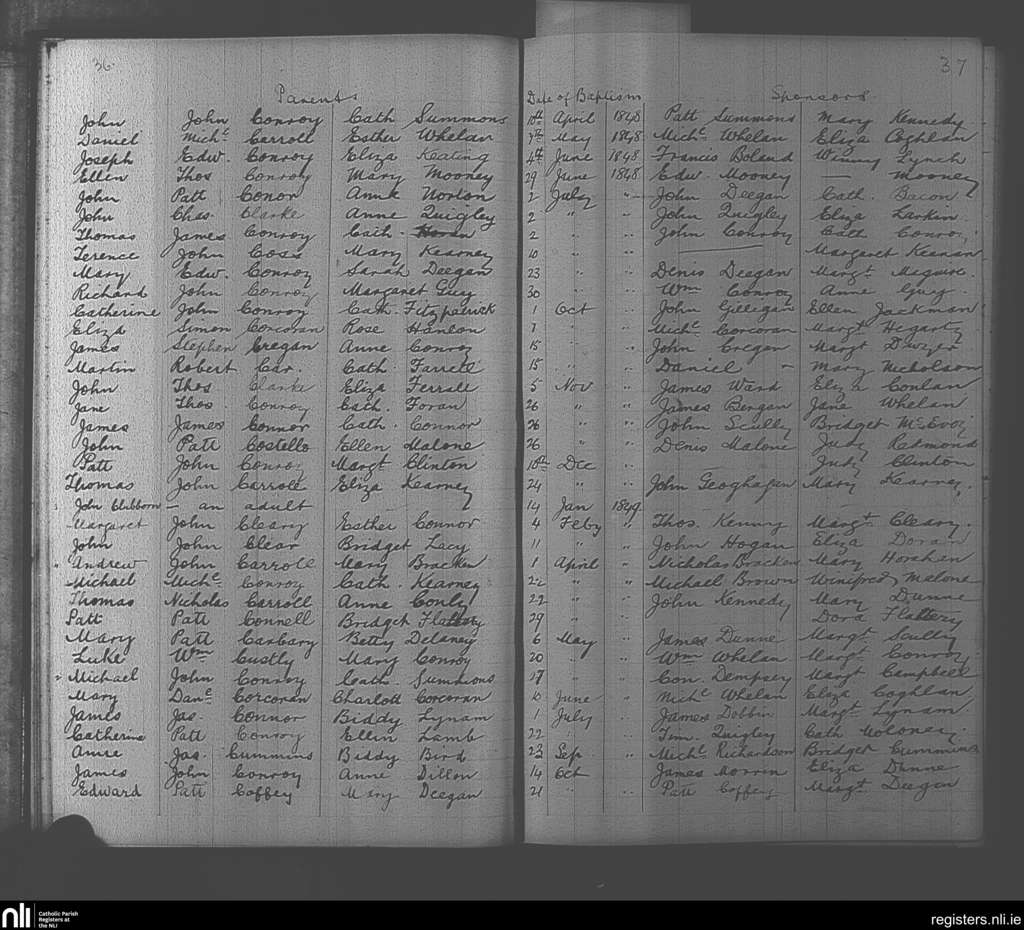 36. 37
Parents Date of Baptism Sponsors
John John Conroy Cath Summons 10th April 1848 Patt Summons Mary Kennedy
Daniel Michl Carroll Esther Whelan 7th May 1848 Michl Whelan Eliza Coghlan
Joseph Edw. Conroy Eliza Keating 4th June 1848 Francis Boland Winny Lynch
Ellen Thos Conroy Mary Mooney 29 June 1848 Edw. Mooney — Mooney
John Patt Conor Anne Norton 2 July " John Deegan Cath. Bacon
John Chas. Clarke Anne Quigley 2 " " John Quigley Eliza Larkin
Thomas James Conroy Cath. 2 " " John Conroy Cath Conroy
Terence John Coss Mary Kearney 10 " " — Margaret Keenan
Mary Edw. Conroy Sarah Deegan 23 " " Denis Deegan Margt. Maguire
Richard John Conroy Margaret Guy 30 " " Wm Conroy Anne Guy
Catherine John Conroy Cath. Fitzpatrick 1 Oct " John Gilligan Ellen Jackman
Eliza Simon Corcoran Rose Hanlon 1 " " Michl Corcoran Margt Hegarty
James Stephen Cregan Anne Conroy 15 " " John Cregan Margt Dwyer
Martin Robert Car. Cath Farrell 15 " " Daniel — Mary Nicholson
John Thos Clarke Eliza Ferrall 5 Nov " James Ward Eliza Conlan
Jane Thos Conroy Cath. Foran 26 " " James Bergan Jane Whelan
James James Connor Cath. Connor 26 " " John Scully Bridget McEvoy
John Patt Costello Ellen Malone 26 " " Denis Malone Judy Redmond
Patt John Conroy Margt Clinton 10th Dec " Judy Clinton
Thomas John Carroll Eliza Kearney 24 " " John Geoghagan Mary Kearney.
John Clibborn - an adult 14 Jan 1849.
Margaret John Cleary Esther Connor 4 Feby " Thos. Kenny Margt Cleary.
John John Clear Bridget Lacy 11 " " John Hogan Eliza Doran
Andrew John Carroll Mary Bracken 1 April " Nicholas Bracken Mary Horahan
Michael Michl Conroy Cath. Kearney 22 " " Michael Brown Winifred Malone
Thomas Nicholas Carroll Anne Conly 29 " " John Kennedy Mary Dunne
Patt Patt Connell Bridget Flattery 29 " " Dora Flattery
Mary Patt Carbary Betty Delaney 6 May " James Dunne Margt. Scully
Luke Wm Custly Mary Conroy 20 " " Wm Whelan Margt Conroy
Michael John Conroy Cath. Summons 17 " " Con. Dempsey Margt Campbell
Mary Danl Corcoran Charlott Corcoran 10 June " Michl Whelan Eliza Coghlan
James Jas. Connor Biddy Lynam 1 July " James Dobbin Margt. Lynam
Catherine Patt Conroy Ellen Lamb 22 " " Tim. Quigley Cath Moloney
Anne Jas. Cummins Biddy Bird 23 Sep " Michl Richardson Bridget Cummins
James John Conroy Anne Dillon 14 Oct " James Morrin Eliza Dunne
Edward Patt Coffey Mary Deegan 21 " " Patt Coffey Margt. Deegan
nli Catholic Parish Registers at the NLI registers.nli.ie